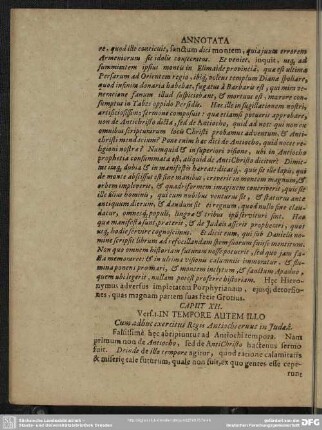 ANNOTATA
re, quod iste conticuit, sanctum dici montem, quia juxta errorem
Armeniorum sit idolis consecratus. Et veniet, inquit, usq; ad
summitatem ipsius montis in Elimaide provincia, quæ est ultima
Persarum ad Orientem regio, ibiq; volens templum Dianæ spoliare,
quod infinita donaria habebat, fugatus à Barbaris est, qui mira ve-
neratione fanum illud suspiciebant, & mortuus est, mœrore con-
sumptus in Tabes oppido Persidis. Hæc ille in sugillationem nostri,
artificiosissimo sermone composuit: quæ etiamsi potuerit approbare,
non de Antichristo dicta, sed de Antiocho, quid ad nos: qui non ex
omnibus scripturarum locis Christi probamus adventum, & Anti-
christi mendacium? Pone enim hæc dici de Antiocho, quid nocet re-
ligioni nostræ? Numquid & in superiore visione, ubi in Antiocho
prophetia consummata est, aliquid de AntiChristo dicitur? Dimit-
tat itaq; dubia & in manifestis hæreat: dicatq; quis sit ille lapis, qui
de monte abscissus est sine manibus, creverit in montem magnum, &
orbem impleverit, & quadriformem imaginem contriverit, quis sit
ille filius hominis, qui cum nubibus venturus sit, & staturus ante
antiquum dierum, & dandum sit ei regnum, quod nullo fine clau-
datur, omnesq; populi, linguæ & tribus ipsi servituri sint. Hæc
quæ manifesta sunt, præterit, & de Judæis asserit prophetari, quos
usq; hodie servire cognoscimus. Et dicit eum, qui sub Danielis no-
mine scripsit librum ad refocillandam spem suorum fuisse mentitum.
Non quo omnem historiam futuram nosse potuerit, sed quo jam fa-
cta memoraret: & in ultima visionis calumniis immoratur, & flu-
mina ponens pro mari, & montem inclytum & sanctum Apadno,
quem ubi legerit, nullam potest proferre historiam. Hæc Hierony-
mus adversus implotatem Porphyrianam, ejusq; detorsio-
nes: quas magnam partem suas fecit Grotius.
CAPUT XII.
Vers. 1. IN TEMPORE AUTEM ILLO
Cum adhuc exercitus Regis Antiochi ernet in Judæâ.
Falsissimè hęc abripiuntur ad Antiochi tempora. Nam
primum non de Antiocho, sed de AntiChristo hactenus sermo
fuit. Deinde de isto tempore agitur, quod ratione calamitatis
& miseriæ tale futurum, quale non fuit, ex quo gentes esse cępe-
runt